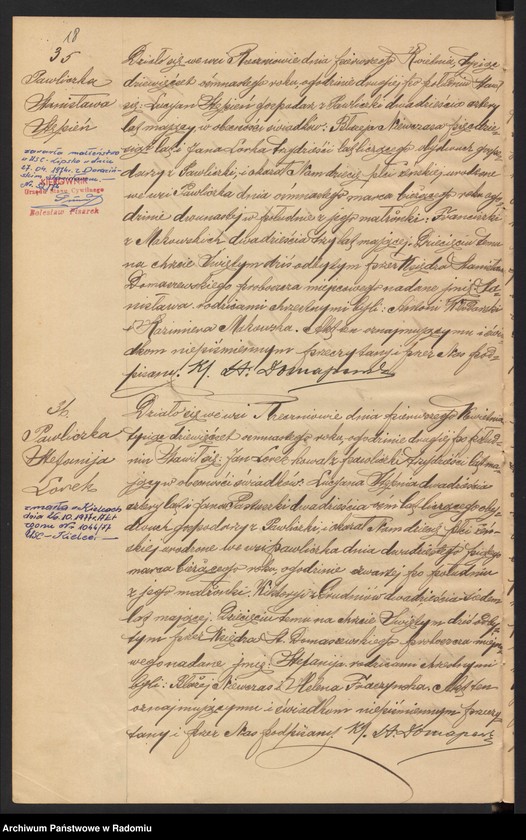 18
35
Pawliczka
Stanisława
Stępień
zawarła małżeństwo
w USC Lipsko w dniu
27.04.1974r. z
Nr.
Urzędu Stanu Cywilnego
Bolesław Pisarek
Działo się we wsi dnia pierwszego Kwietnia tysiąc
dziewięćset ósmnastego roku o godzinie drugiej po południu Stawił
się: Lucjan Stępień gospodarz z Pawliczki dwadzieścia cztery
lat mający w obecności świadków: Błażeja Niewczasa pięćdzie-
siąt lat i Jana Lorka trzydzieści lat liczących obydwóch gospo-
darzy z Pawliczki, i okazał Nam dziecię płci żeńskiej urodzone
we wsi Pawliczka dnia ósmnastego marca bieżącego roku o go-
dzinie dwunastej w południe z jego małżonki: Franciszki
z Makowskich dwadzieścia trzy lat mającej. Dziecięciu temu
na chrzcie Świętym dziś odbytym przez Księdza Stanisława
Domaszewskiego proboszcza miejscowego nadane imię: Sta-
nisława. rodzicami chrzestnymi byli: Antoni
i Kazimiera Makowska. Akt ten oznajmującemu i świad-
kom niepiśmiennym przeczytany i przez Nas pod-
pisany. Kś. St.
36.
Pawliczka
Stefanija
Lorek
zmarła w Kielcach
dnia 26.10.1977r. Akt
zgonu Nr 1066/77
USC - Kielce
Działo się we wsi dnia pierwszego Kwietnia
tysiąc dziewięćset ósmnastego roku o godzinie drugiej po połud-
niu Stawił się: Jan Lorek kowal z Pawliczki trzydzieści lat ma-
jący w obecności świadków: Lucjana Stępnia dwadzieścia
cztery lat i Jana dwadzieścia lat liczących oby-
dwóch gospodarzy z Pawliczki, i okazał Nam dziecię płci żeń-
skiej urodzone we wsi Pawliczka dnia dwudziestego
marca bieżącego roku o godzinie czwartej po południu
z jego małżonki: Wiktoryi z Grudniów dwadzieścia siedem
lat mającej. Dziecięciu temu na chrzcie Świętym dziś odby-
tym przez Księdza St. Domaszewskiego proboszcza miejsco-
wego nadane imię: Stefanija. rodzicami chrzestnymi
byli: Błażej Niewczas i Helena Akt ten
oznajmującemu i świadkom niepiśmiennym przeczy-
tany i przez Nas podpisany Kś. St.
Archiwum Państwowe w Radomiu